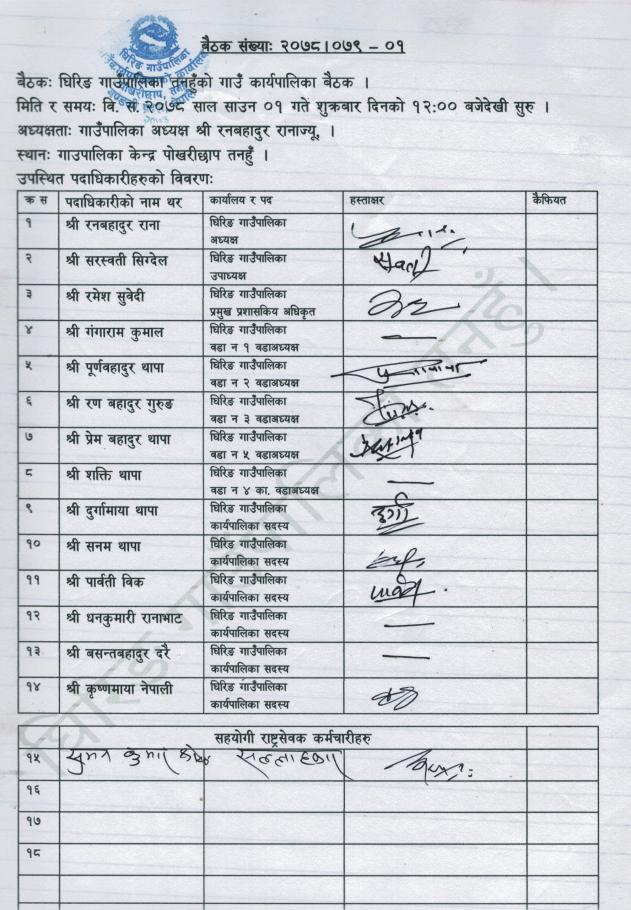 बैठक संख्याः २०७८।०७९ - ०१
बैठकः घिरिङ गाउँपालिका तनहुँको गाउँ कार्यपालिका बैठक ।
मिति र समयः वि. सं. २०७८ साल साउन ०१ गते शुक्रबार दिनको १२:०० बजेदेखी सुरु ।
अध्यक्षताः गाउँपालिका अध्यक्ष श्री रनबहादुर रानाज्यू ।
स्थानः गाउपालिका केन्द्र पोखरीछाप तनहुँ ।
उपस्थित पदाधिकारीहरुको विवरणः
क्र स पदाधिकारीको नाम थर कार्यालय र पद हस्ताक्षर कैफियत
१ श्री रनबहादुर राना घिरिङ गाउँपालिका
अध्यक्ष
२ श्री सरस्वती सिग्देल घिरिङ गाउँपालिका
उपाध्यक्ष
३ श्री रमेश सुवेदी घिरिङ गाउँपालिका
प्रमुख प्रशासकिय अधिकृत
४ श्री गंगाराम कुमाल घिरिङ गाउँपालिका —
वडा न १ वडाअध्यक्ष
५ श्री पूर्णबहादुर थापा घिरिङ गाउँपालिका
वडा न २ वडाअध्यक्ष
६ श्री रण बहादुर गुरुङ घिरिङ गाउँपालिका
वडा न ३ वडाअध्यक्ष
७ श्री प्रेम बहादुर थापा घिरिङ गाउँपालिका
वडा न ५ वडाअध्यक्ष
८ श्री शक्ति थापा घिरिङ गाउँपालिका —
वडा न ४ का. वडाअध्यक्ष
९ श्री दुर्गामाया थापा घिरिङ गाउँपालिका दुर्गा
कार्यपालिका सदस्य
१० श्री सनम थापा घिरिङ गाउँपालिका
कार्यपालिका सदस्य
११ श्री पार्वती विक घिरिङ गाउँपालिका
कार्यपालिका सदस्य
१२ श्री धनकुमारी रानाभाट घिरिङ गाउँपालिका —
कार्यपालिका सदस्य
१३ श्री बसन्तबहादुर दरै घिरिङ गाउँपालिका —
कार्यपालिका सदस्य
१४ श्री कृष्णमाया नेपाली घिरिङ गाउँपालिका
कार्यपालिका सदस्य
सहयोगी राष्ट्रसेवक कर्मचारीहरु
१५ कुमार
१६
१७
१८
घिरिङ गाउँपालिका तनहुँ ।